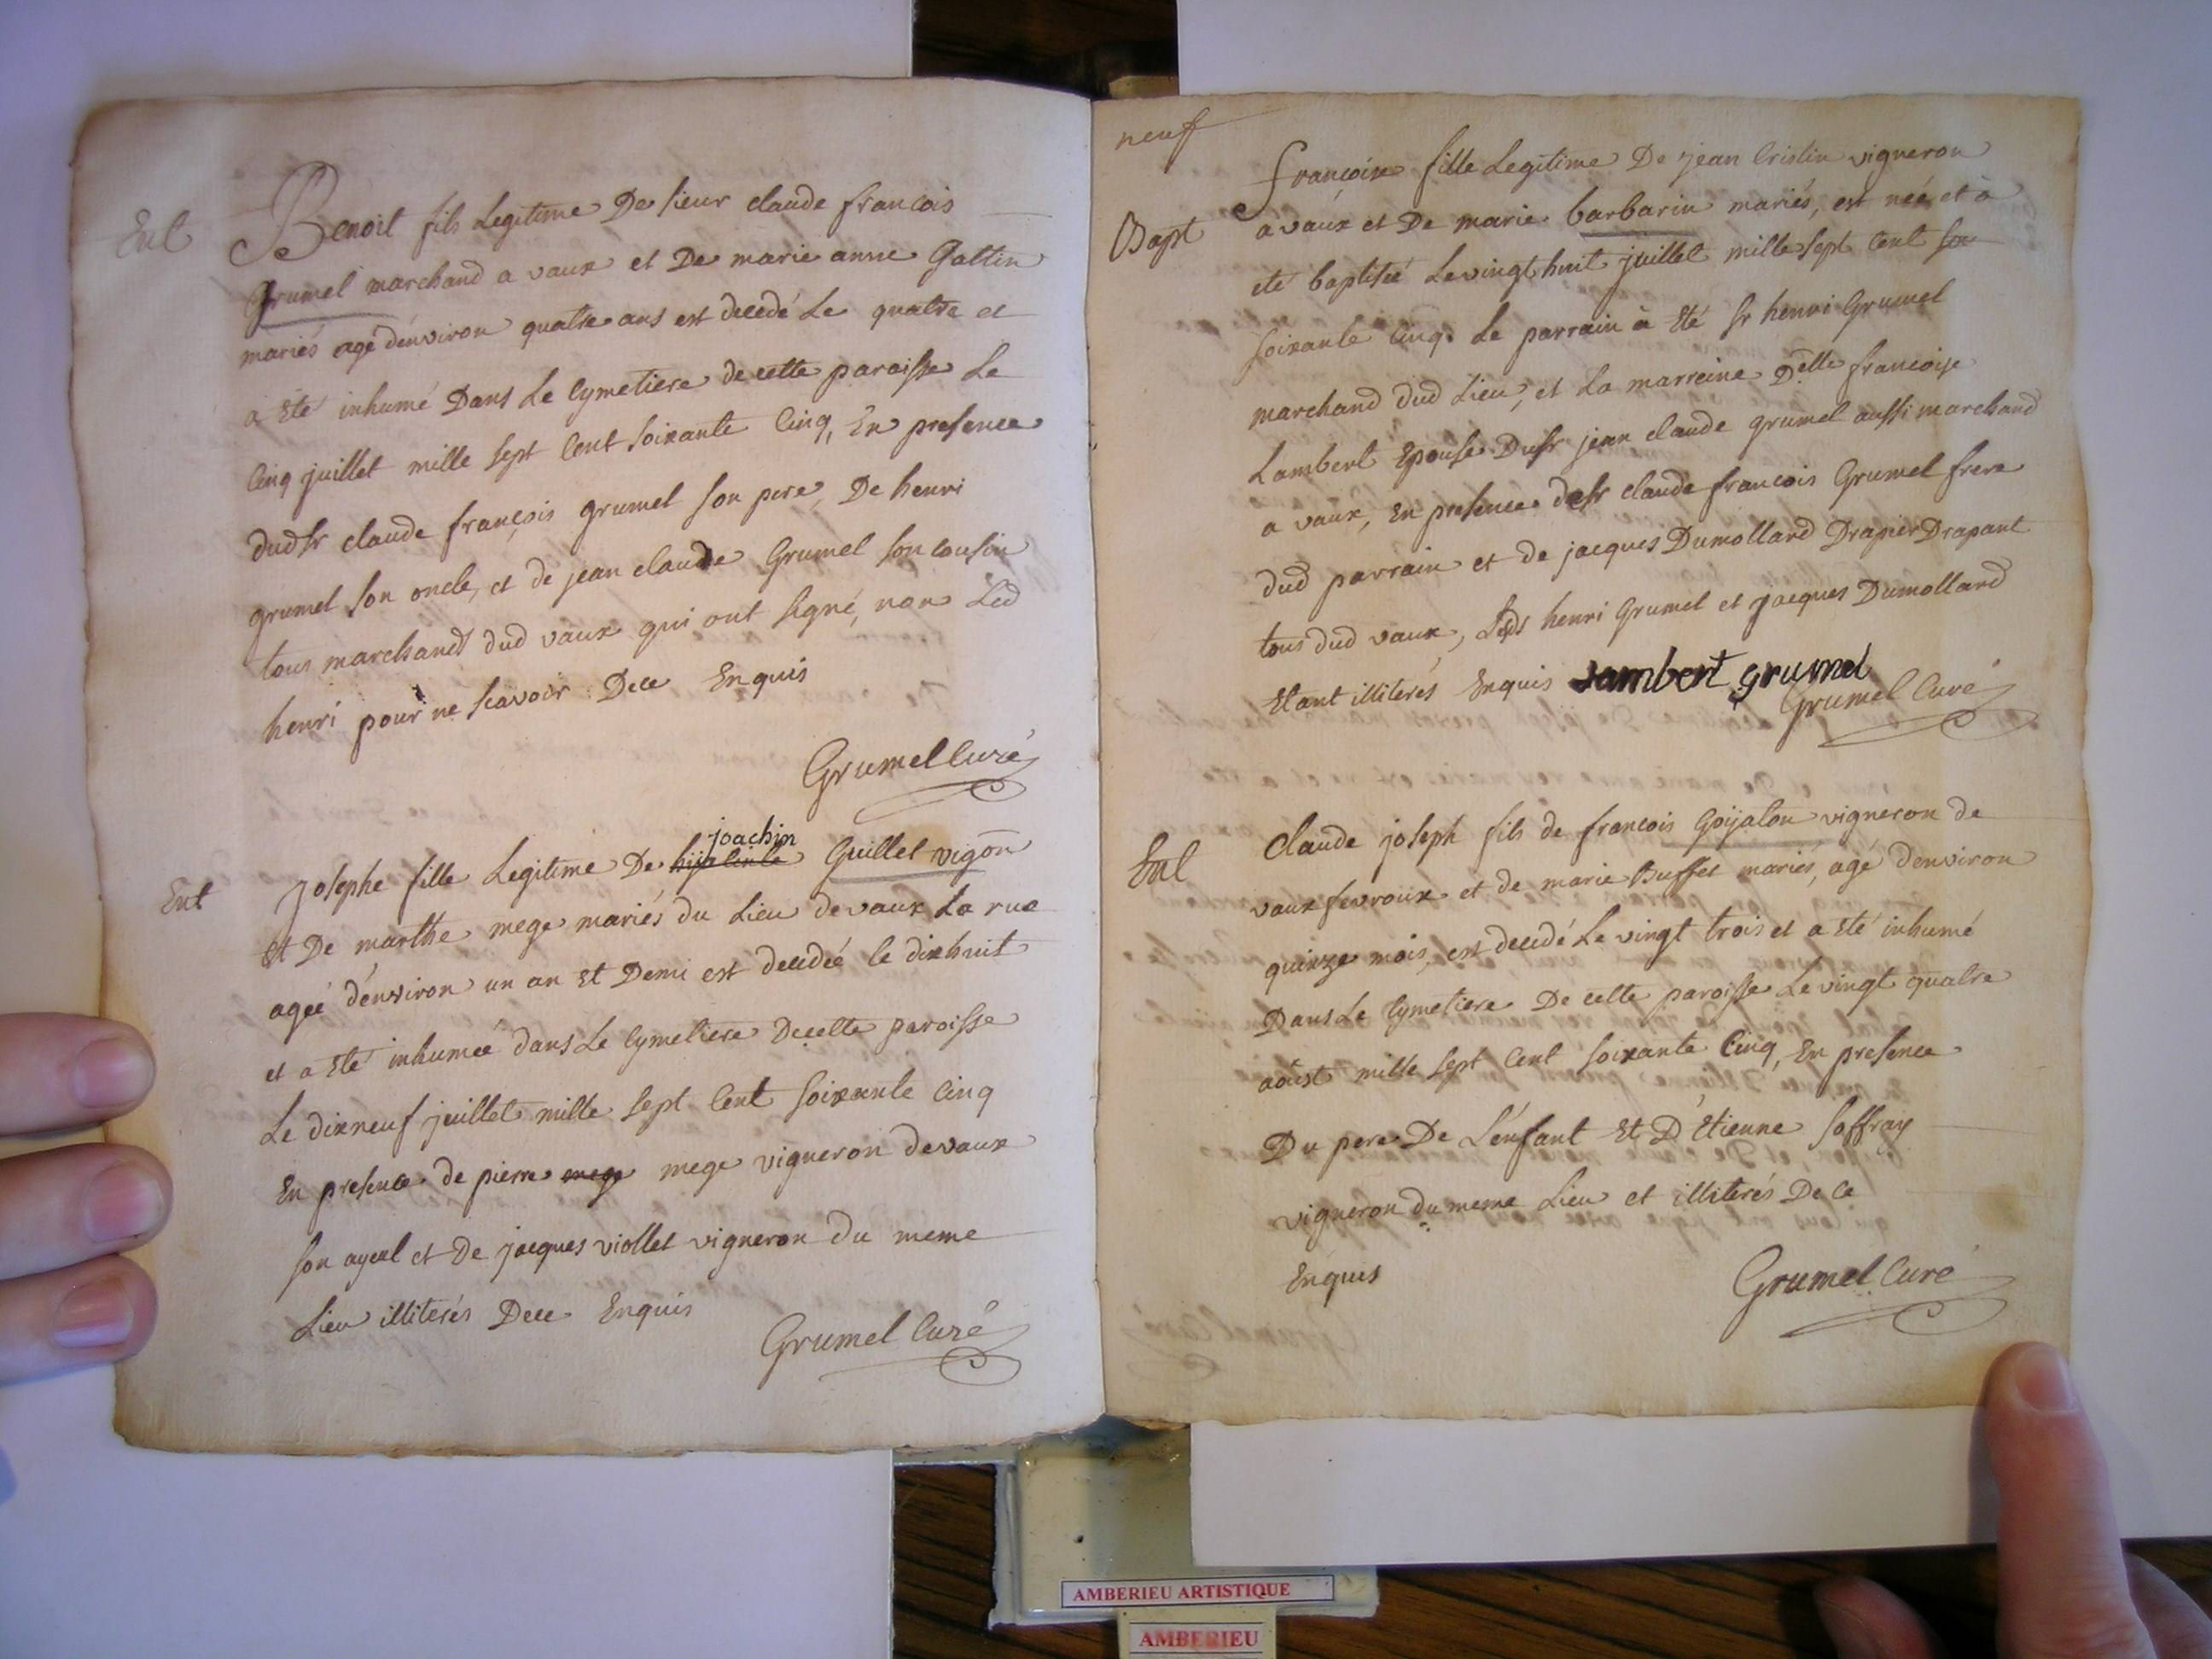 Ent
Benoit fils Legitime De sieur claude francois
Grumel marchand a vaux et De marie anne Gattin
mariés agé d'environ quatre ans est decedé Le quatre et
a Eté inhumé Dans Le Cymetiere de cette paroisse Le
Cinq juillet mille sept Cent soixante Cinq, En presence
dud sr claude françois grumel son pere, De henri
grumel son oncle, et de jean claude Grumel son cousin
tous marchands dud vaux qui ont signé, non Led
henri pour ne scavoir De ce Enquis
Grumel Curé
joachin
Ent
Josephe fille Legitime De Guillet vigon
et De marthe mege mariés du Lieu de vaux La rue
ageé d'environ un an Et Demi est decedée le dixhuit
et a Eté inhumeé dans Le Cymetiere De cette paroisse
Le dixneuf juillet mille sept Cent soixante Cinq
En presence de pierre mege mege vigneron de vaux
son ayeul et De jacques viollet vigneron du meme
Lieu illiterés De ce Enquis
Grumel Curé
neuf
Bapt
francoise fille Legitime De jean Cristin vigneron
a vaux et De marie barbarin mariés, est neé et à
eté baptiseé Le vingt huit juillet mille sept Cent so
soixante Cinq. Le parrain à Eté sr henri Grumel
marchand dud Lieu, et La marreine Delle francoise
Lambert Epouse Du sr jean claude grumel aussi marchand
a vaux, En presence de sr claude francois Grumel frere
dud parrain et de jacques Dumollard Drapier Drapant
tous dud vaux, Lesds henri Grumel et jacques Dumollard
Etant illiterés Enquis Lambert grumel
Grumel Curé
Ent
Claude joseph fils de francois Goijalon vigneron de
vaux fevroux et de marie Buffet mariés, agé d'environ
quinze mois, est decedé Le vingt trois et a Eté inhumé
Dans Le Cymetiere De cette paroisse Le vingt quatre
aoûst mille sept Cent soixante Cinq, En presence
Du pere De L'enfant Et D'Etienne Saffray
vigneron du meme Lieu et illiterés De ce
Enquis
Grumel Curé
AMBERIEU ARTISTIQUE
AMBERIEU